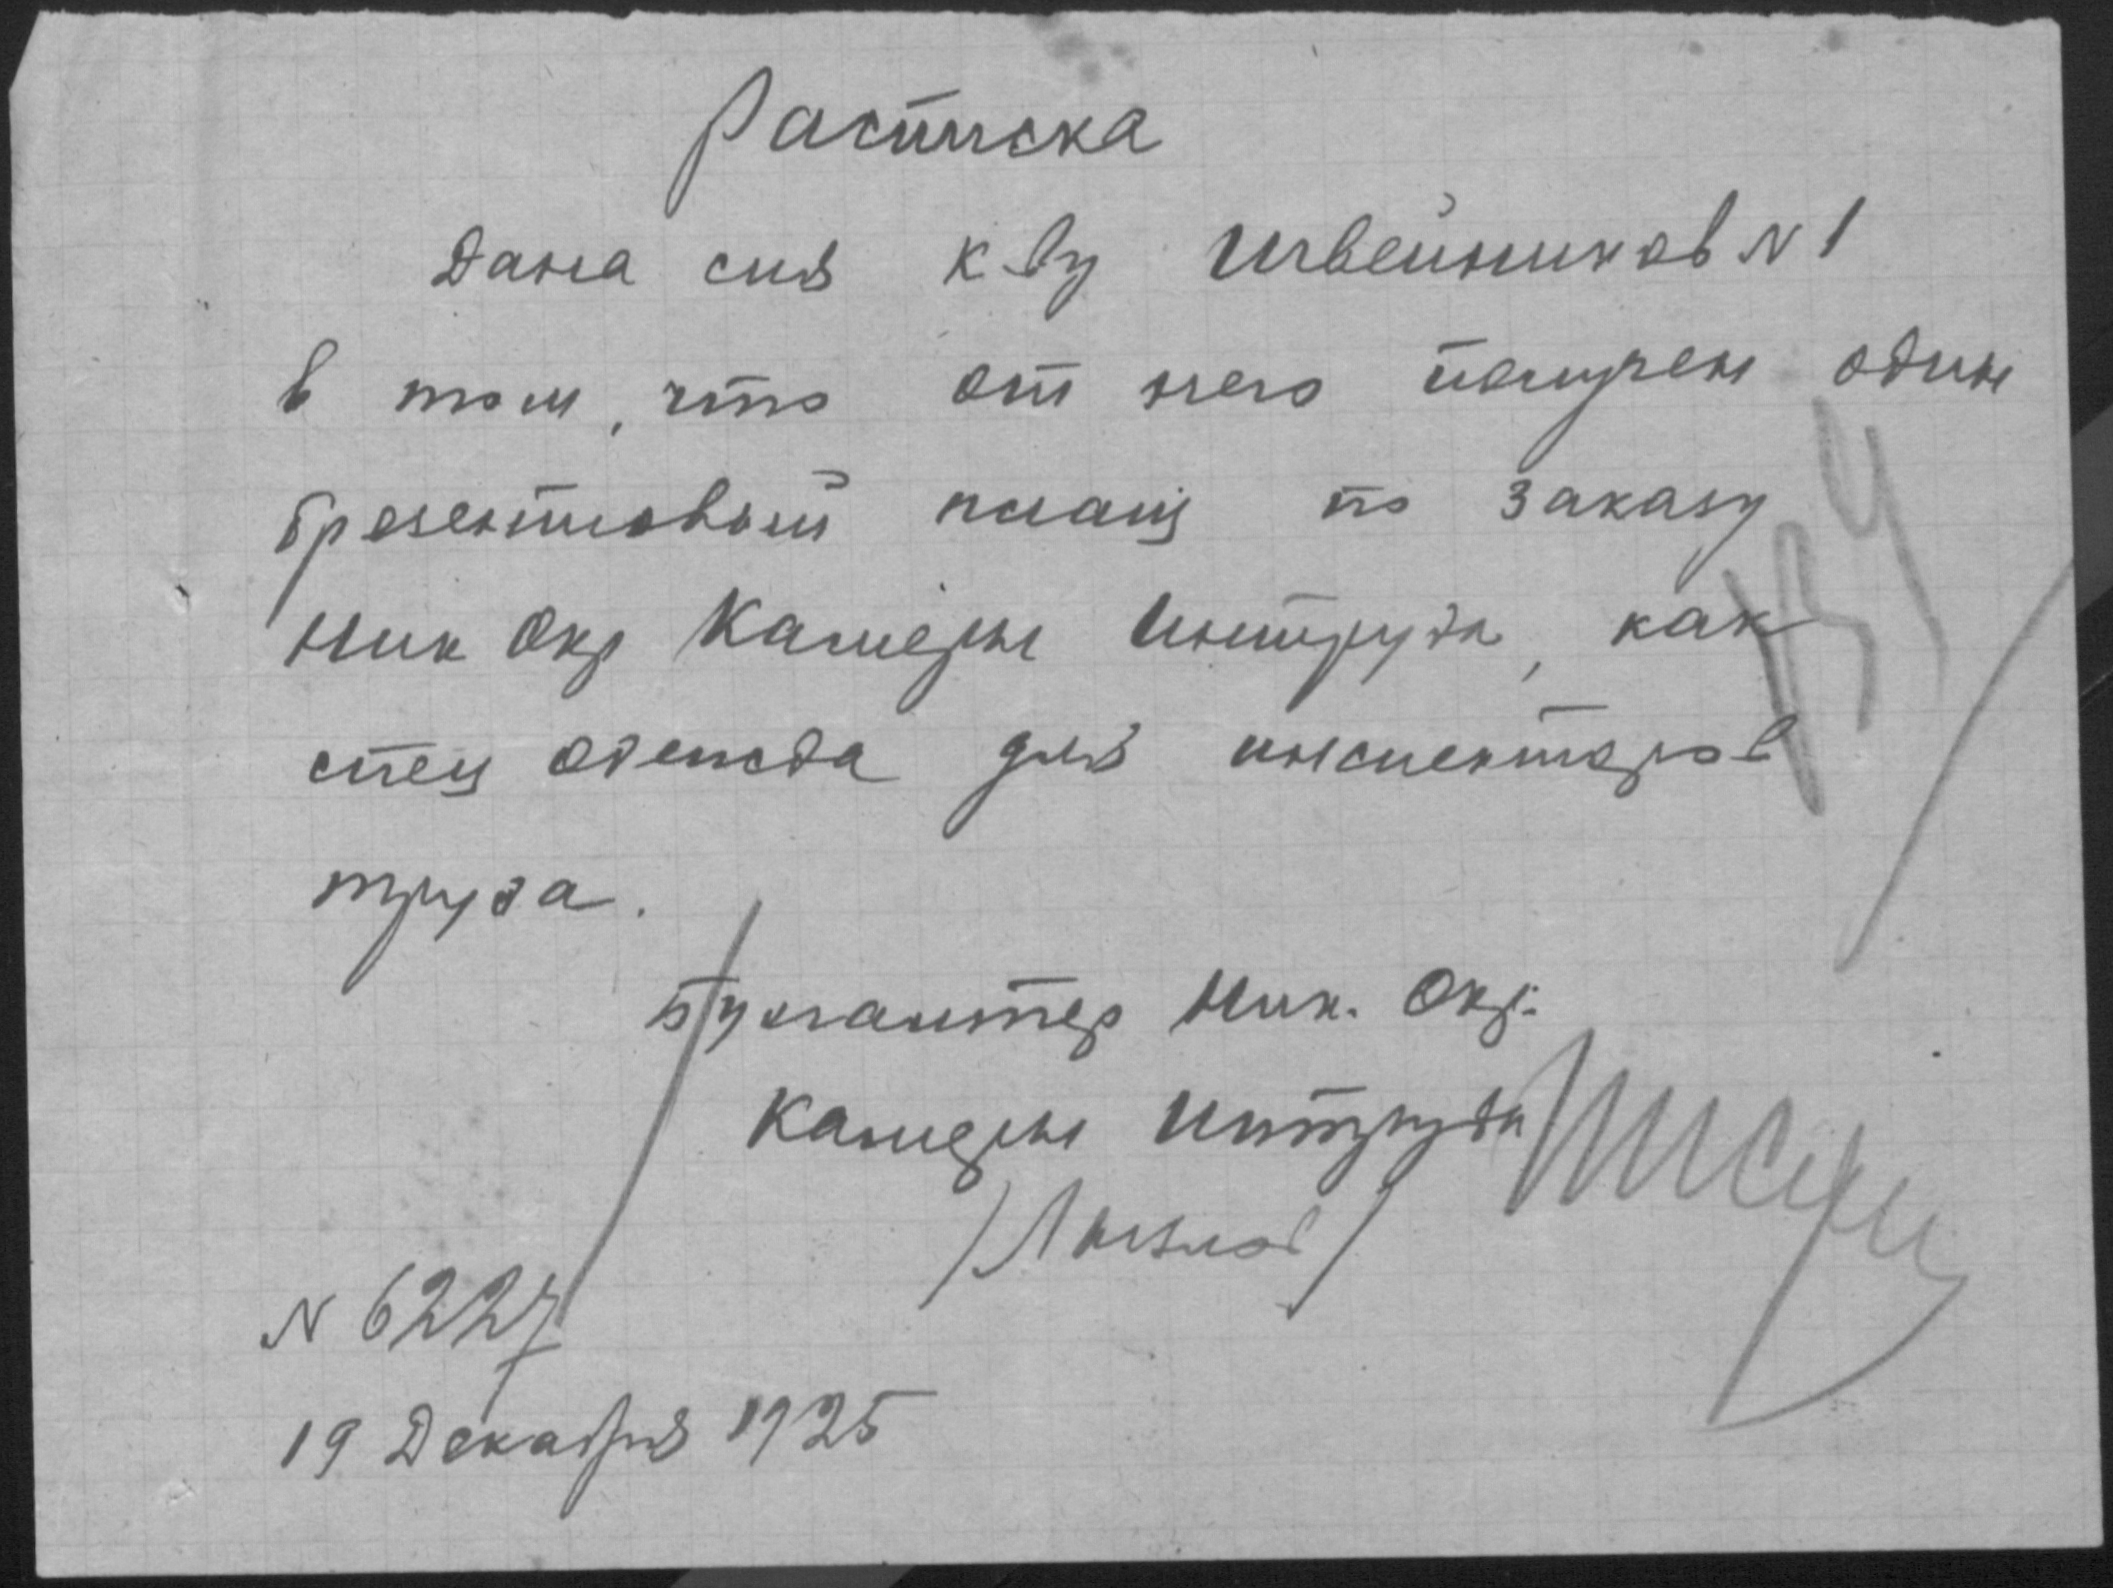 Расписка
Дана сия К-ву Швейников № 1
в том, что от него получен один
брезентовый плащ по заказу
Ник Окр Камеры Интруда, как
спец одежда для инспекторов
труда.
Бухгалтер Ник. Окр.
Камеры Интруда
№ 6227
19 Декабря 1925